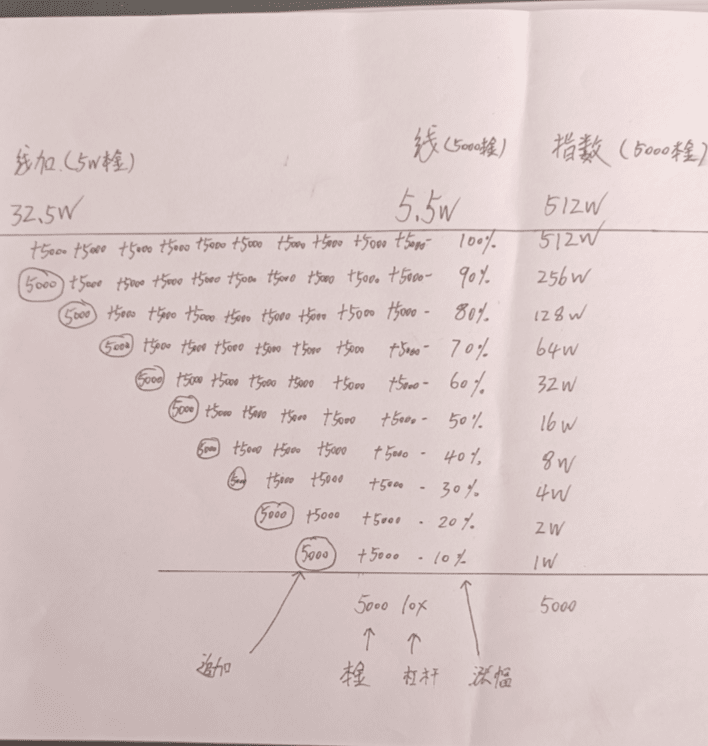 线加(5W本金) 线(5000本金) 指数(5000本金)
32.5W 5.5W 512W
+5000 +5000 +5000 +5000 +5000 +5000 +5000 +5000 +5000 +5000- 100% 512W
5000 +5000 +5000 +5000 +5000 +5000 +5000 +5000 +5000 +5000- 90% 256W
5000 +5000 +5000 +5000 +5000 +5000 +5000 +5000 +5000- 80% 128W
5000 +5000 +5000 +5000 +5000 +5000 +5000- 70% 64W
5000 +5000 +5000 +5000 +5000 +5000- 60% 32W
5000 +5000 +5000 +5000 +5000 +5000- 50% 16W
5000 +5000 +5000 +5000 +5000- 40% 8W
5000 +5000 +5000 +5000 - 30% 4W
5000 +5000 +5000 - 20% 2W
5000 +5000 - 10% 1W
5000 10x 5000
追加 本金 杠杆 涨幅